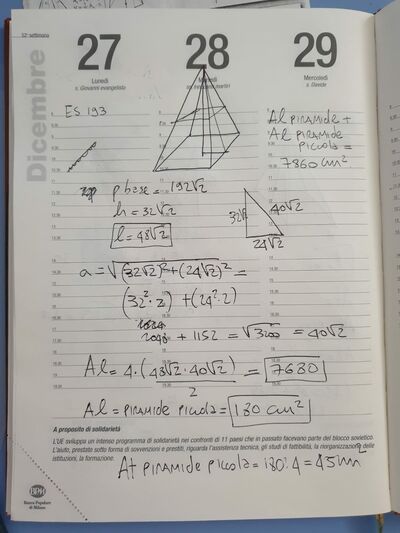 52ª settimana
27
28
29
Lunedì
Martedì
Mercoledì
s. Giovanni evangelista
ss. Innocenti martiri
s. Davide
Dicembre
ES 193
Al PIRAMIDE +
Al PIRAMIDE
PICCOLA =
7860 cm²
p base = 192√2
h = 32√2
l = 48√2
32√2
40√2
24√2
a = √(32√2)²+(24√2)² =
(32²·2)+(24²·2)
2048 + 1152 = √3200 = 40√2
Al = 4·(48√2·40√2) = 7680
2
Al = PIRAMIDE PICCOLA = 180 cm²
A proposito di solidarietà
L'UE sviluppa un intenso programma di solidarietà nei confronti di 11 paesi che in passato facevano parte del blocco sovietico.
L'aiuto, prestato sotto forma di sovvenzioni e prestiti, riguarda l'assistenza tecnica, gli studi di fattibilità, la riorganizzazione delle
istituzioni, la formazione.
At PIRAMIDE PICCOLA = 180:4 = 45 cm²
BPM
Banca Popolare
di Milano